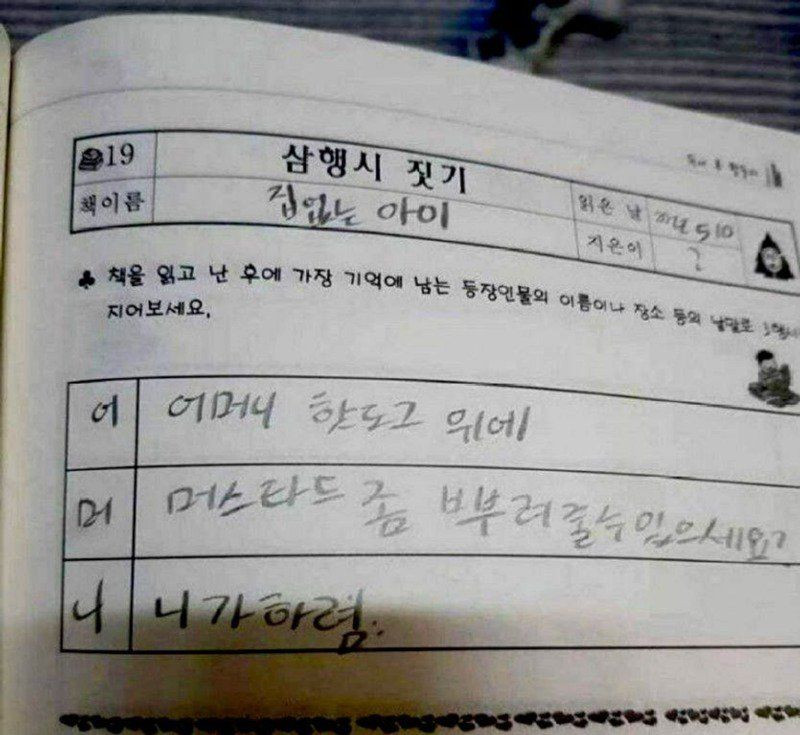 19 삼행시 짓기
책이름 집없는 아이
읽은 날
지은이 ?
♣ 책을 읽고 난 후에 가장 기억에 남는 등장인물의 이름이나 장소 등의 낱말로
지어보세요.
어 어머니 핫도그 위에
머 머스타드 좀 뿌려줄수있으세요?
니 니가하렴.